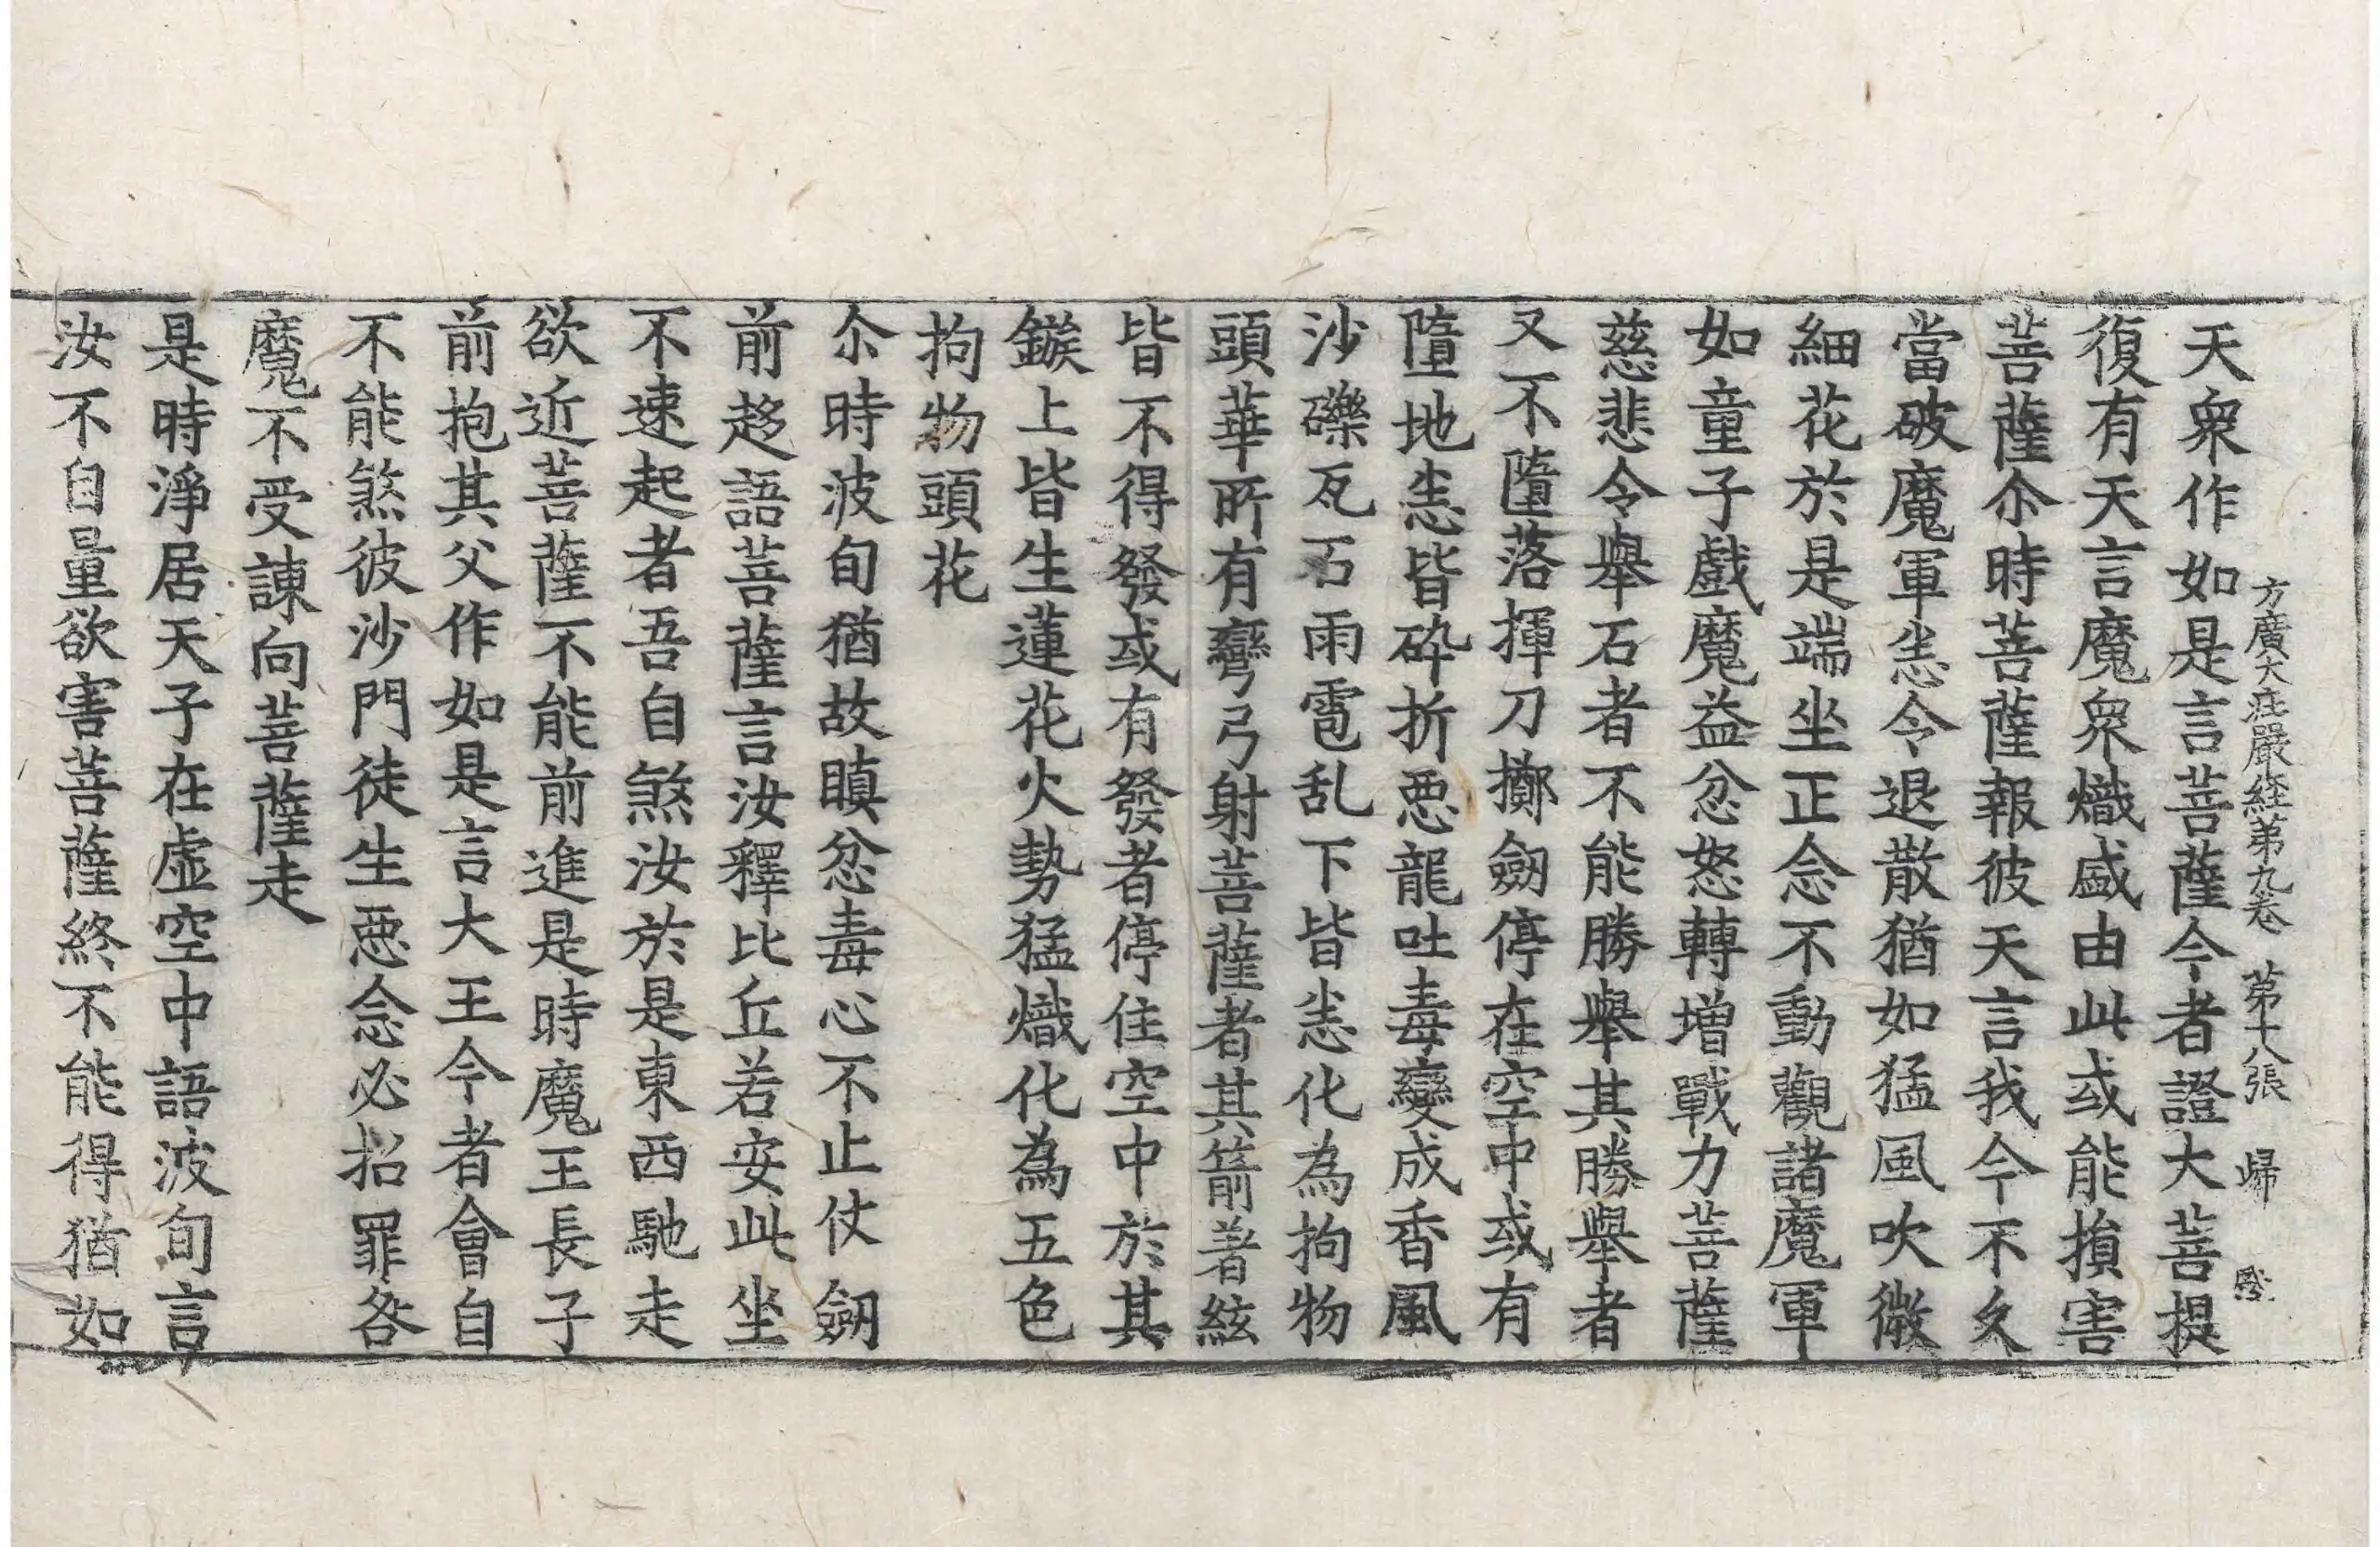 方廣大莊嚴経苐九卷 苐十八張 歸
天衆作如是言菩薩今者證大菩提
復有天言魔衆熾盛由此或能損害
菩薩尒時菩薩報彼天言我今不久
當破魔軍悉令退散猶如猛風吹微
細花於是端坐正念不動觀諸魔軍
如童子戲魔益忿怒轉增戰力菩薩
慈悲令舉石者不能勝舉其勝舉者
又不墮落揮刀擲劒停在空中或有
墮地悉皆碎折惡龍吐毒變成香風
沙礫瓦石雨雹乱下皆悉化為拘物
頭華所有彎弓射菩薩者其箭著絃
皆不得發或有發者停住空中於其
鏃上皆生蓮花火勢猛熾化為五色
拘物頭花
尒時波旬猶故瞋忿毒心不止仗劒
前趍語菩薩言汝釋比丘若安此坐
不速起者吾自煞汝於是東西馳走
欲近菩薩不能前進是時魔王長子
前抱其父作如是言大王今者會自
不能煞彼沙門徒生惡念必招罪咎
魔不受諫向菩薩走
是時淨居天子在虛空中語波旬言
汝不自量欲害菩薩終不能得猶如